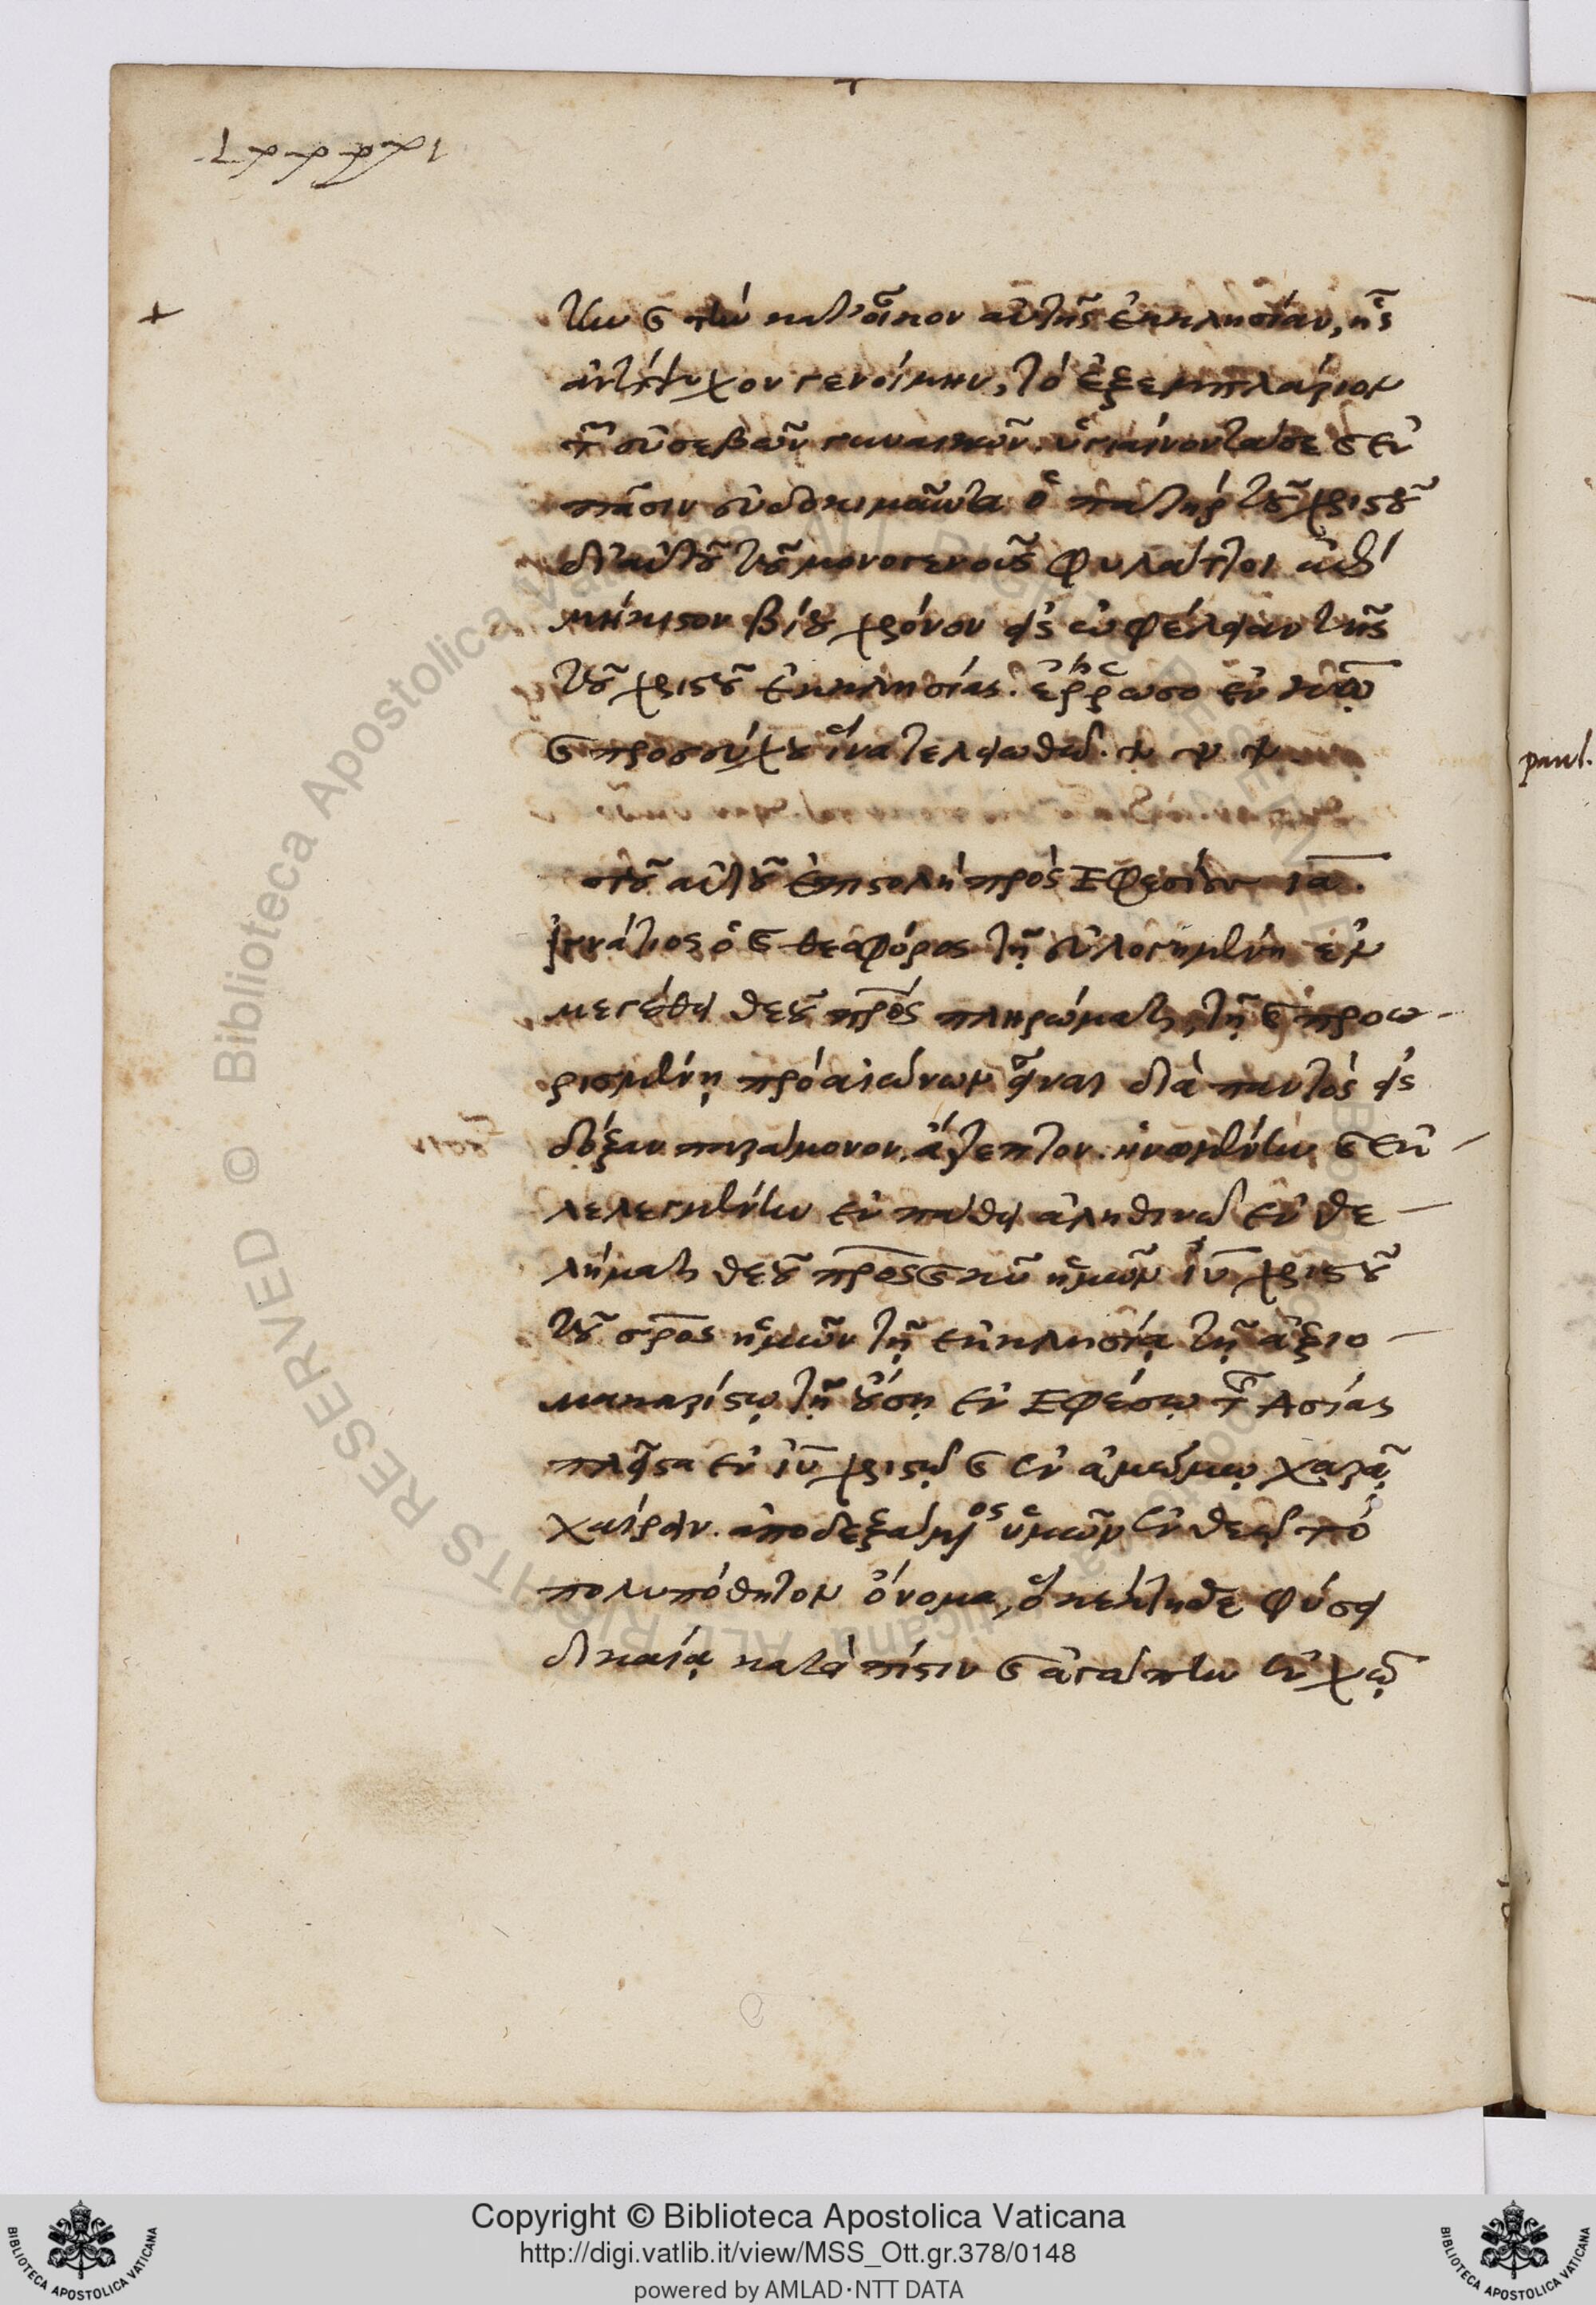 την ϗ τὴν κατ' οἶκον αὐτῆς ἐκκλησίαν, ἧς
ἀντίψυχον γενοίμην, τὸ ἐξεμπλάριον
τῶν εὐσεβῶν γυναικῶν. ὑγιαίνοντά σε ϗ ἐν
πᾶσιν εὐδοκιμοῦντα ὁ πατὴρ τοῦ χριστοῦ
δι' αὐτοῦ τοῦ μονογενοῦς φυλάττοι ἐπὶ
μήκιστον βίου χρόνον εἰς ὠφέλειαν τῆς
τοῦ χριστοῦ ἐκκλησίας. ἔρρωσο ἐν κω
ϗ προσεύχου ἵνα τελειωθῶ.
τοῦ αὐτοῦ ἐπιστολὴ πρὸς Ἐφεσίους ια.
ἰγνάτιος ὁ ϗ θεοφόρος τῇ εὐλογημένῃ ἐν
μεγέθει θεοῦ πρς πληρώματι, τῇ ϗ προω-
ρισμένῃ πρὸ αἰώνων εἶναι διὰ παντὸς εἰς
δόξαν παράμονον. ἄτρεπτον. ἡνωμένην ϗ ἐκ-
λελεγμένην ἐν πάθει ἀληθινῷ ἐν θε-
λήματι θεοῦ πρς ϗ κυ ἡμῶν ιυ χριστοῦ
τοῦ σρς ἡμῶν τῇ ἐκκλησίᾳ τῇ ἀξιο-
μακαρίστῳ τῇ οὔσῃ ἐν Ἐφέσῳ τῆς Ἀσίας
πλεῖστα ἐν ιυ χριστῷ ϗ ἐν ἀμώμῳ χαρᾷ
χαίρειν. ἀποδεξάμενος ὑμῶν ἐν θεῷ τὸ
πολυπόθητον ὄνομα, ὃ κέκτησθε φύσει
δικαίᾳ κατὰ πίστιν ϗ ἀγάπην ἐν χω
paul.
© Biblioteca Apostolica Vaticana ALL RIGHTS RESERVED
Copyright © Biblioteca Apostolica Vaticana
http://digi.vatlib.it/view/MSS_Ott.gr.378/0148
powered by AMLAD·NTT DATA
BIBLIOTECA APOSTOLICA VATICANA
BIBLIOTECA APOSTOLICA VATICANA